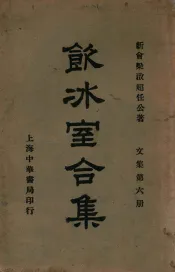 新會梁啟超任公著
文集第六册
飲冰室合集
上海中華書局印行